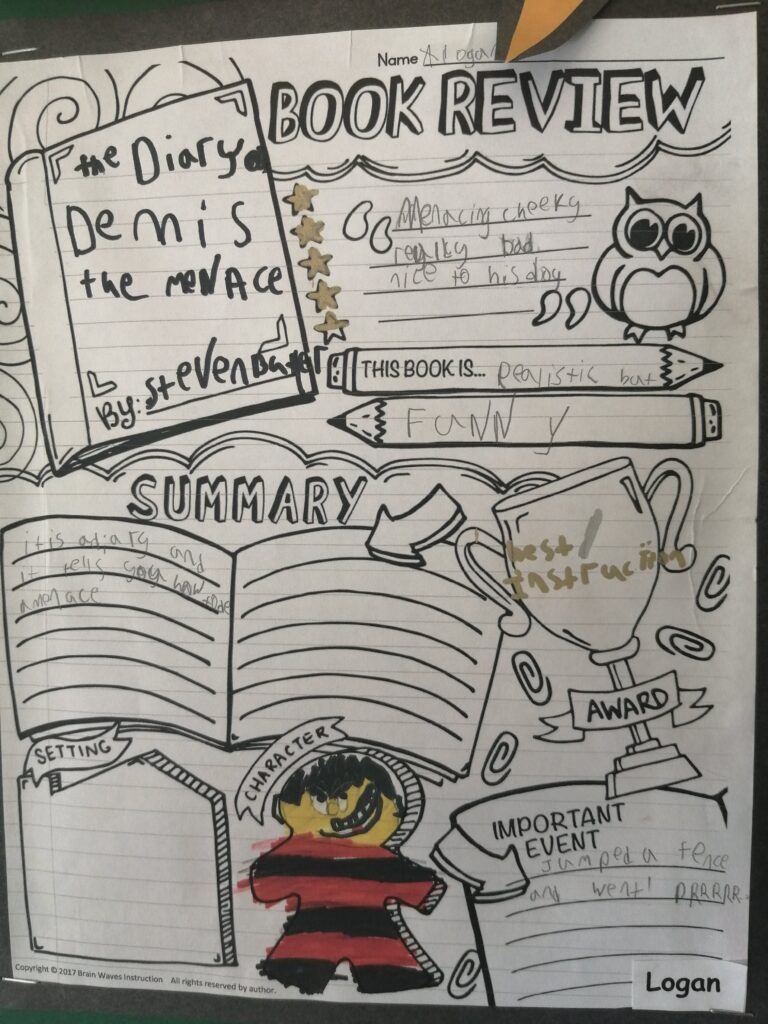 Name Logan
BOOK REVIEW
the Diary of
Dennis
the MENACE
By: Steven Butler
Menacing cheeky
really bad
nice to his dog
THIS BOOK IS... Realistic but
FUNNY
SUMMARY
it is a diary and
it tells you how to be
a menace
best
Instruction
AWARD
SETTING
CHARACTER
IMPORTANT
EVENT
Jumped a fence
and went PRRRRR.
Copyright © 2017 Brain Waves Instruction All rights reserved by author.
Logan